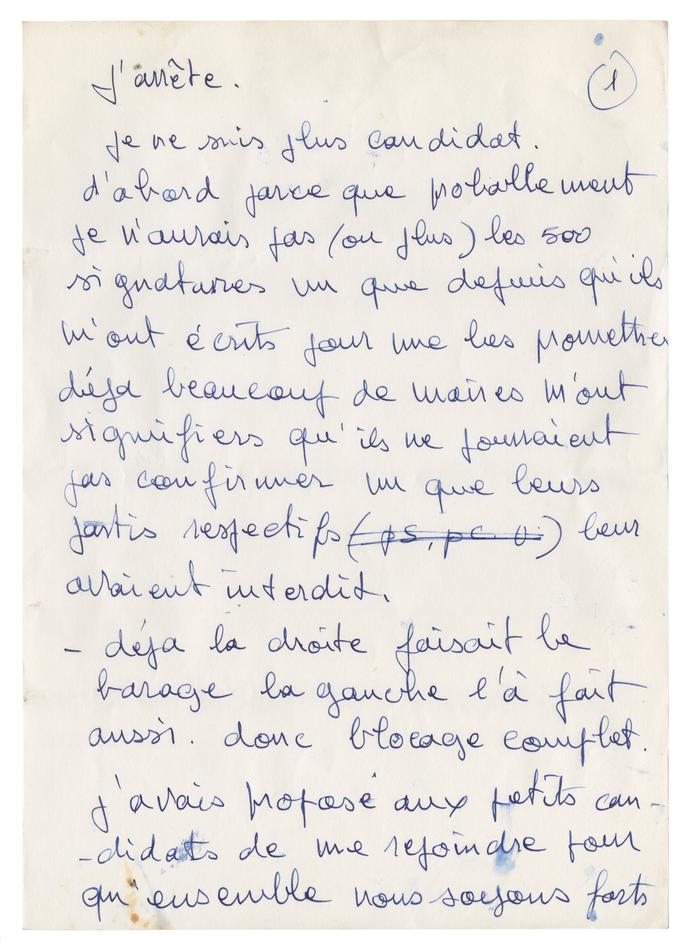 J'arrête.
1
Je ne suis plus candidat.
d'abord parce que probablement
Je n'aurais pas (ou plus) les 500
signatures vu que depuis qu'ils
m'ont écrits pour me les promettre
déja beaucoup de maires m'ont
signifiers qu'ils ne pourraient
pas confirmer vu que leurs
partis respectifs (ps, pc. U.) leur
avaient interdit.
- déja la droite faisait le
barage la gauche l'à fait
aussi. donc blocage complet.
J'avais proposé aux petits can-
-didats de me rejoindre pour
qu'ensemble nous soyons forts